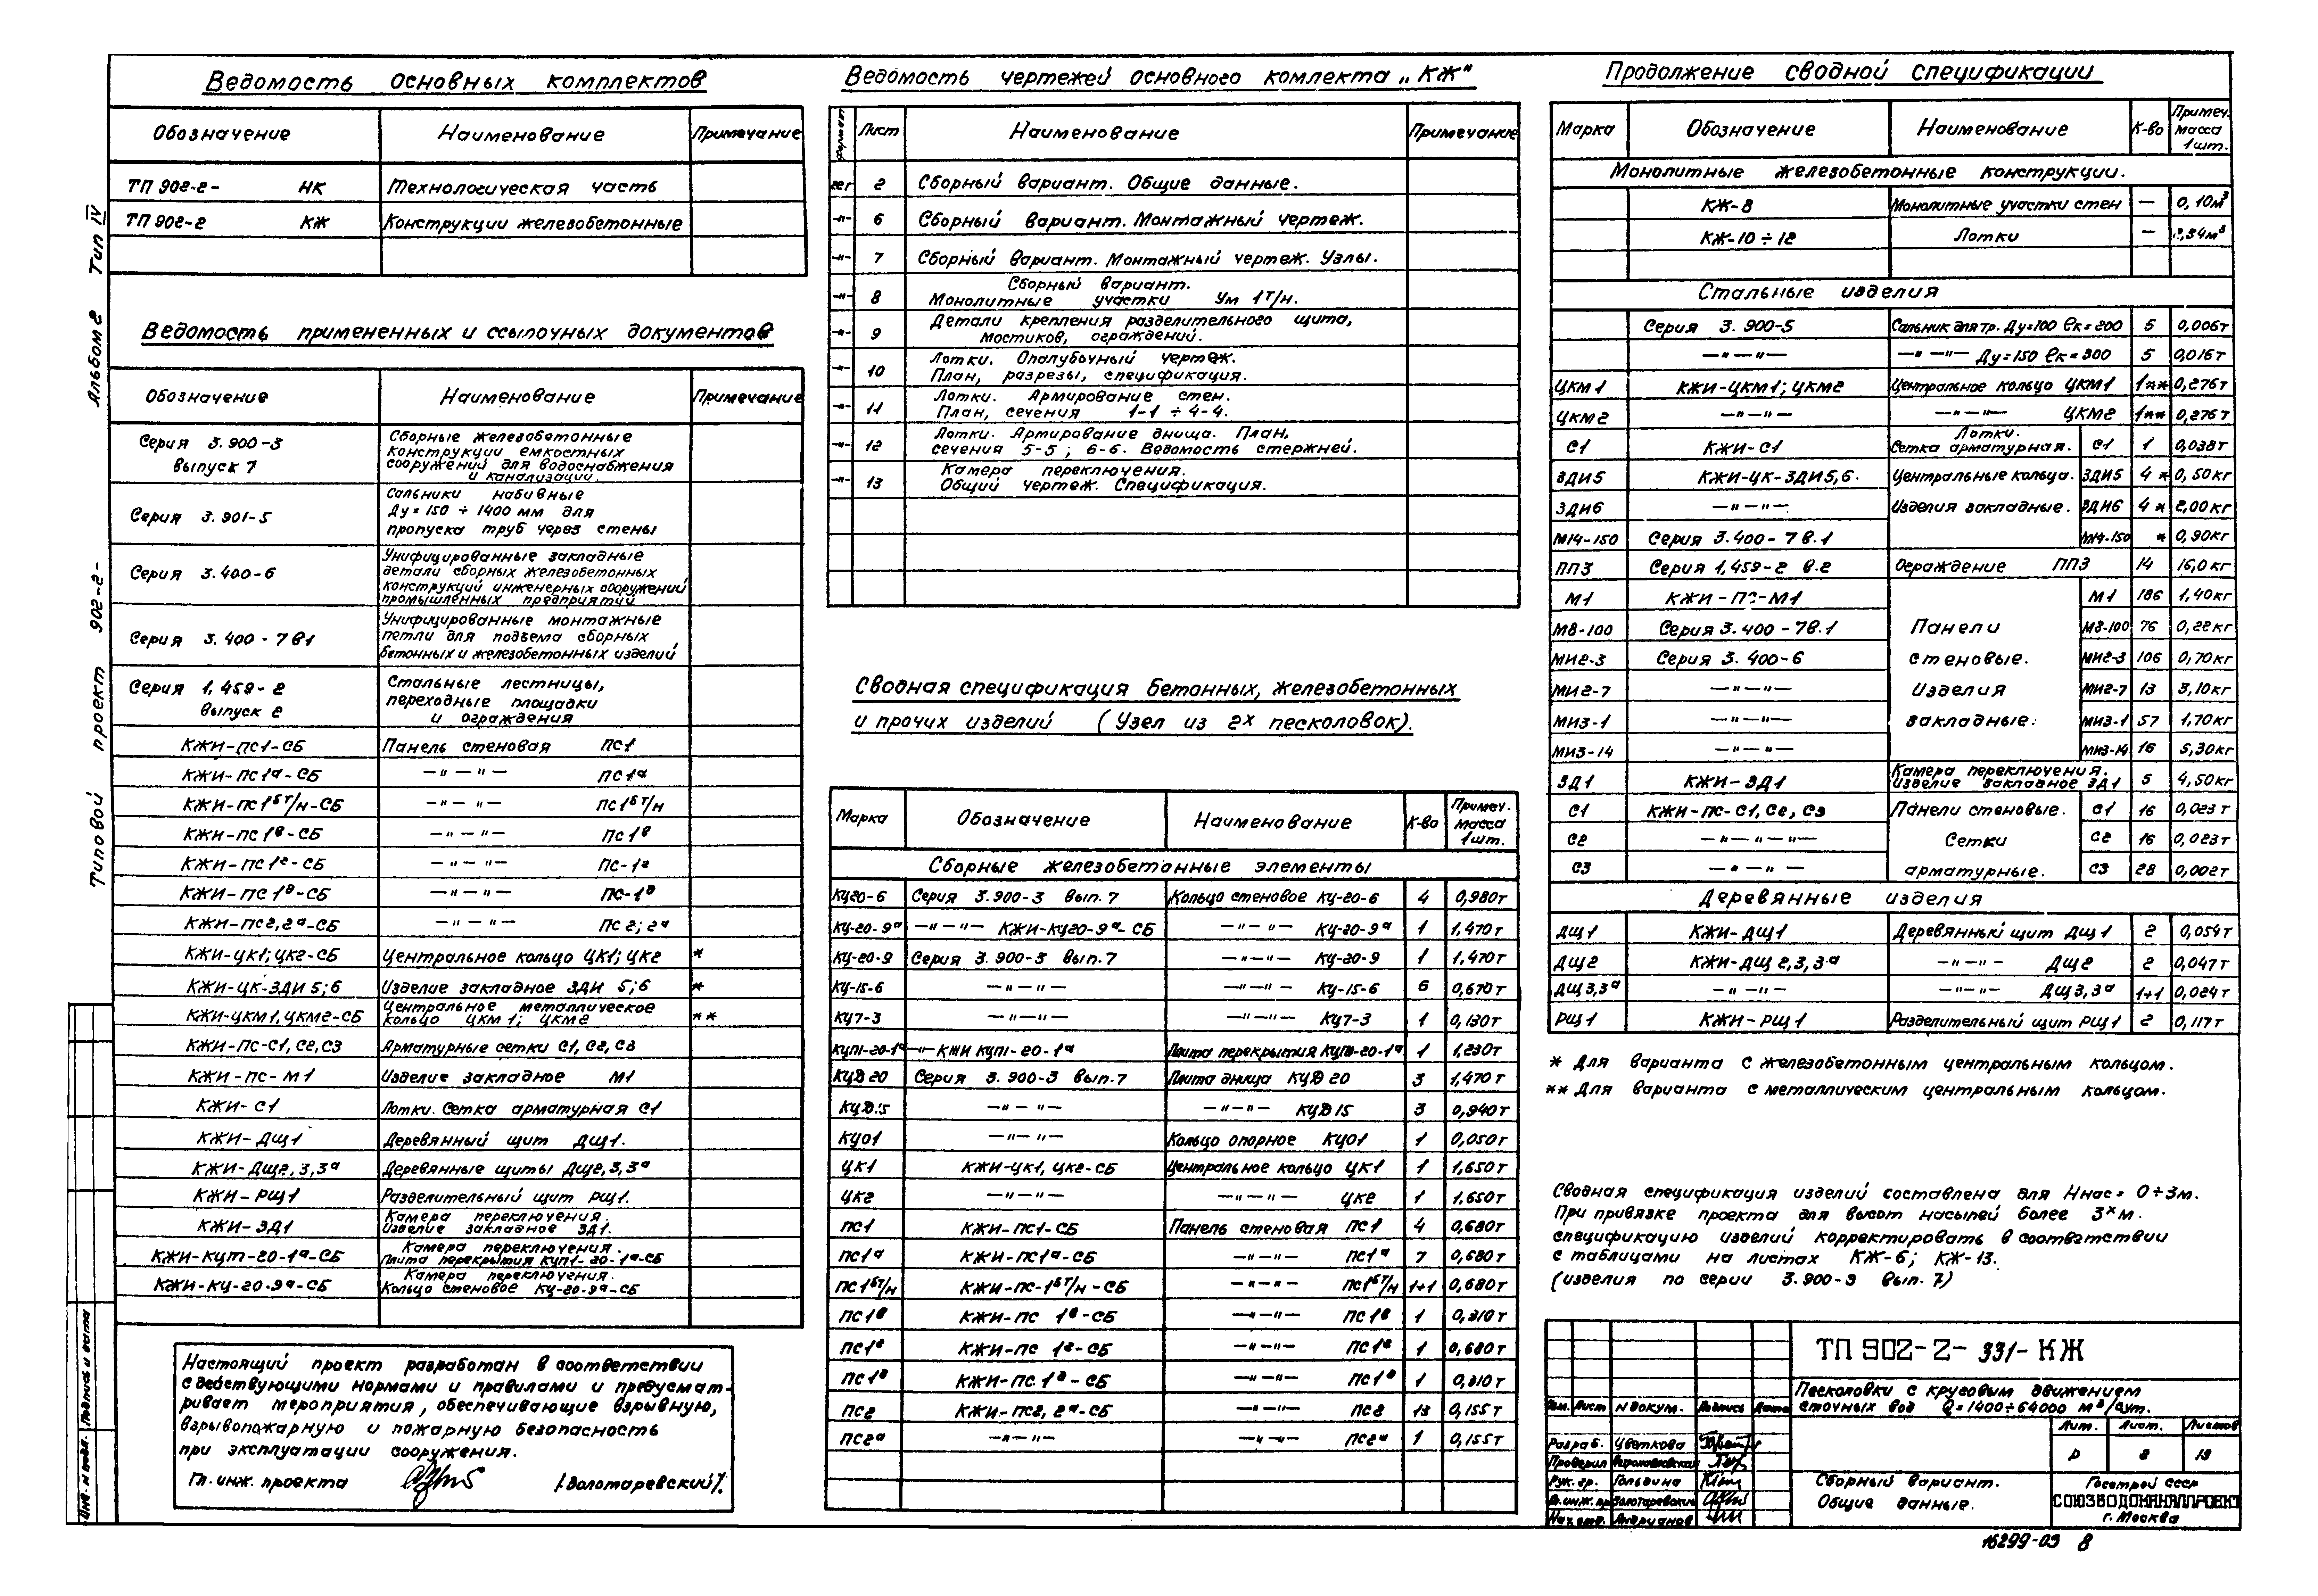 Альбом 2 Тип IV
Типовой проект 902-2-
Ведомость основных комплектов
Обозначение Наименование Примечание
ТП 902-2- НК Технологическая часть
ТП 902-2 КЖ Конструкции железобетонные
Ведомость примененных и ссылочных документов
Обозначение Наименование Примечание
Серия 3.900-3
выпуск 7
Сборные железобетонные
конструкции емкостных
сооружений для водоснабжения
и канализации.
Серия 3.901-5
Сальники набивные
Ду = 150 ÷ 1400 мм для
пропуска труб через стены
Серия 3.400-6
Унифицированные закладные
детали сборных железобетонных
конструкций инженерных сооружений
промышленных предприятий
Серия 3.400-7в1
Унифицированные монтажные
петли для подъема сборных
бетонных и железобетонных изделий
Серия 1,459-2
выпуск 2
Стальные лестницы,
переходные площадки
и ограждения
КЖИ-ПС1-СБ Панель стеновая ПС1
КЖИ-ПС1а-СБ —"—"— ПС1а
КЖИ-ПС1бт/н-СБ —"—"— ПС1бт/н
КЖИ-ПС1в-СБ —"—"— ПС1в
КЖИ-ПС1г-СБ —"—"— ПС-1г
КЖИ-ПС1д-СБ —"—"— ПС-1д
КЖИ-ПС2,2а-СБ —"—"— ПС2;2а
КЖИ-ЦК1;ЦК2-СБ Центральное кольцо ЦК1;ЦК2 *
КЖИ-ЦК-ЗДИ5;6 Изделие закладное ЗДИ 5;6 *
КЖИ-ЦКМ1,ЦКМ2-СБ Центральное металлическое
кольцо ЦКМ1; ЦКМ2 **
КЖИ-ПС-С1,С2,С3 Арматурные сетки С1,С2,С3
КЖИ-ПС-М1 Изделие закладное М1
КЖИ-С1 Лотки. Сетка арматурная С1
КЖИ-ДЩ1 Деревянный щит ДЩ1.
КЖИ-ДЩ2,3,3а Деревянные щиты ДЩ2,3,3а
КЖИ-РЩ1 Разделительный щит РЩ1.
КЖИ-ЗД1 Камера переключения.
Изделие закладное ЗД1.
КЖИ-КЦП-20-1а-СБ Камера переключения.
Плита перекрытия КЦП1-20-1а-СБ
КЖИ-КЦ-20-9а-СБ Камера переключения.
Кольцо стеновое КЦ-20-9а-СБ
Настоящий проект разработан в соответствии
с действующими нормами и правилами и предусмат-
ривает мероприятия, обеспечивающие взрывную,
взрывопожарную и пожарную безопасность
при эксплуатации сооружения.
Гл. инж. проекта /Золотаревский/.
Инв. N подл. Подпись и дата
Ведомость чертежей основного комлекта „КЖ"
формат Лист Наименование Примечание
22г 2 Сборный вариант. Общие данные.
-"- 6 Сборный вариант. Монтажный чертеж.
-"- 7 Сборный вариант. Монтажный чертеж. Узлы.
-"- 8 Сборный вариант.
Монолитные участки Ум 1т/н.
-"- 9 Детали крепления разделительного щита,
мостиков, ограждений.
-"- 10 Лотки. Опалубочный чертеж.
План, разрезы, спецификация.
-"- 11 Лотки. Армирование стен.
План, сечения 1-1 ÷ 4-4.
-"- 12 Лотки. Армирование днища. План,
сечения 5-5; 6-6. Ведомость стержней.
-"- 13 Камера переключения.
Общий чертеж. Спецификация.
Сводная спецификация бетонных, железобетонных
и прочих изделий (Узел из 2х песколовок).
Марка Обозначение Наименование К-во Примеч. масса 1шт.
Сборные железобетонные элементы
КЦ20-6 Серия 3.900-3 вып.7 Кольцо стеновое КЦ-20-6 4 0,980т
КЦ-20-9а —"—"— КЖИ-КЦ20-9а-СБ —"—"— КЦ-20-9а 1 1,470т
КЦ-20-9 Серия 3.900-3 вып.7 —"—"— КЦ-20-9 1 1,470т
КЦ-15-6 —"—"— —"—"— КЦ-15-6 6 0,670т
КЦ7-3 —"—"— —"—"— КЦ7-3 1 0,130т
КЦП1-20-1а —"— КЖИ КЦП1-20-1а Плита перекрытия КЦП1-20-1а 1 1,230т
КЦД20 Серия 3.900-3 вып.7 Плита днища КЦД20 3 1,470т
КЦД15 —"—"— —"—"— КЦД15 3 0,940т
КЦО1 —"—"— Кольцо опорное КЦО1 1 0,050т
ЦК1 КЖИ-ЦК1, ЦК2-СБ Центральное кольцо ЦК1 1 1,650т
ЦК2 —"—"— —"—"— ЦК2 1 1,650т
ПС1 КЖИ-ПС1-СБ Панель стеновая ПС1 4 0,680т
ПС1а КЖИ-ПС1а-СБ —"—"— ПС1а 7 0,680т
ПС1бт/н КЖИ-ПС-1бт/н-СБ —"—"— ПС1бт/н 1+1 0,680т
ПС1в КЖИ-ПС 1в-СБ —"—"— ПС1в 1 0,310т
ПС1г КЖИ-ПС 1г-СБ —"—"— ПС1г 1 0,680т
ПС1д КЖИ-ПС 1д-СБ —"—"— ПС1д 1 0,310т
ПС2 КЖИ-ПС2, 2а-СБ —"—"— ПС2 13 0,155т
ПС2а —"—"— —"—"— ПС2а 1 0,155т
Продолжение сводной спецификации
Марка Обозначение Наименование К-во Примеч. масса 1шт.
Монолитные железобетонные конструкции.
КЖ-8 Монолитные участки стен — 0,10м3
КЖ-10÷12 Лотки — 2,34м3
Стальные изделия
Серия 3.900-5 Сальник для тр. Ду=100 ℓк=200 5 0,006т
—"—"— —"—"— Ду=150 ℓк=300 5 0,016т
ЦКМ1 КЖИ-ЦКМ1; ЦКМ2 Центральное кольцо ЦКМ1 1** 0,276т
ЦКМ2 —"—"— —"—"— ЦКМ2 1** 0,276т
С1 КЖИ-С1 Лотки.
Сетка арматурная. С1 1 0,038т
ЗДИ5 КЖИ-ЦК-ЗДИ5,6. Центральные кольца. ЗДИ5 4* 0,50кг
ЗДИ6 —"—"— Изделия закладные. ЗДИ6 4* 2,00кг
М14-150 Серия 3.400-7 в.1 М14-150 * 0,90кг
ПП3 Серия 1,459-2 в.2 Ограждение ПП3 14 16,0кг
М1 КЖИ-ПС-М1 М1 186 1,40кг
М8-100 Серия 3.400-7в.1 Панели М8-100 76 0,22кг
МИ2-3 Серия 3.400-6 стеновые. МИ2-3 106 0,70кг
МИ2-7 —"—"— Изделия МИ2-7 13 3,10кг
МИ3-1 —"—"— закладные. МИ3-1 57 1,70кг
МИ3-14 —"—"— МИ3-14 16 5,30кг
ЗД1 КЖИ-ЗД1 Камера переключения.
Изделие закладное ЗД1 5 4,50кг
С1 КЖИ-ПС-С1,С2,С3 Панели стеновые. С1 16 0,023т
С2 —"—"—"— Сетки С2 16 0,023т
С3 —"—"— арматурные. С3 28 0,002т
Деревянные изделия
ДЩ1 КЖИ-ДЩ1 Деревянный щит ДЩ1 2 0,054т
ДЩ2 КЖИ-ДЩ2,3,3а —"—"— ДЩ2 2 0,047т
ДЩ3,3а —"—"— —"—"— ДЩ3,3а 1+1 0,024т
РЩ1 КЖИ-РЩ1 Разделительный щит РЩ1 2 0,117т
* Для варианта с железобетонным центральным кольцом.
** Для варианта с металлическим центральным кольцом.
Сводная спецификация изделий составлена для Ннас = 0÷3м.
При привязке проекта для высот насыпей более 3х м.
спецификацию изделий корректировать в соответствии
с таблицами на листах КЖ-6; КЖ-13.
(изделия по серии 3.900-3 вып. 7)
ТП 902-2-331-КЖ
Песколовки с круговым движением
сточных вод Q=1400÷64000 м3/сут.
Изм. Лист N докум. Подпись Дата
Разраб. Цветкова
Проверил
Рук. гр. Гольдина
Гл. инж. пр. Золотаревский
Нач. отд. Андрианов
Лит. Лист. Листов
Р 2 13
Сборный вариант.
Общие данные.
Госстрой СССР
СОЮЗВОДОКАНАЛПРОЕКТ
г. Москва
16299-03 8